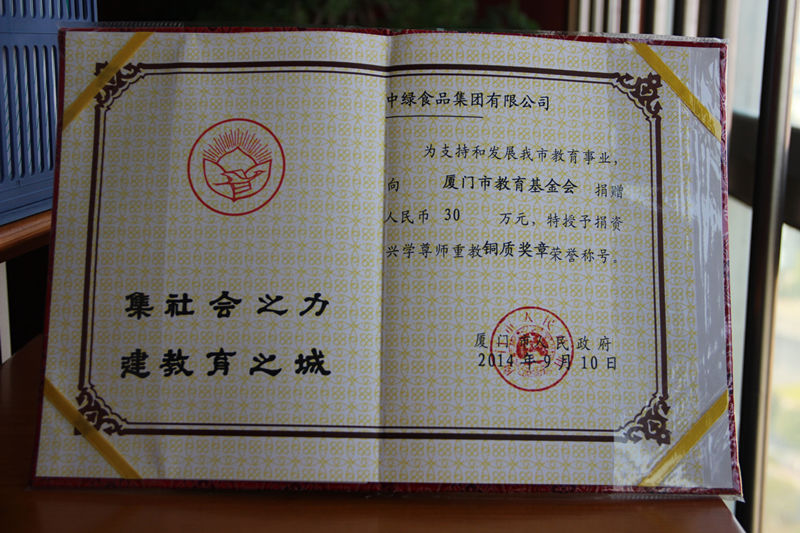 集社会之力
建教育之城
中绿食品集团有限公司
为支持和发展我市教育事业,
向 厦门市教育基金会 捐赠
人民币 30 万元, 特授予捐资
兴学尊师重教铜质奖章荣誉称号。
厦门市人民政府
2014年9月10日